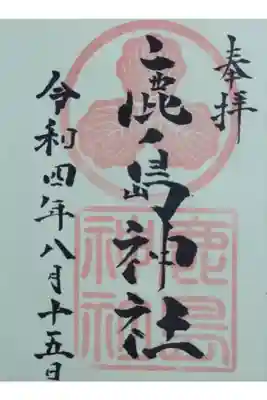 奉拝
鹿島神社
令和四年八月十五日
鹿島
神社